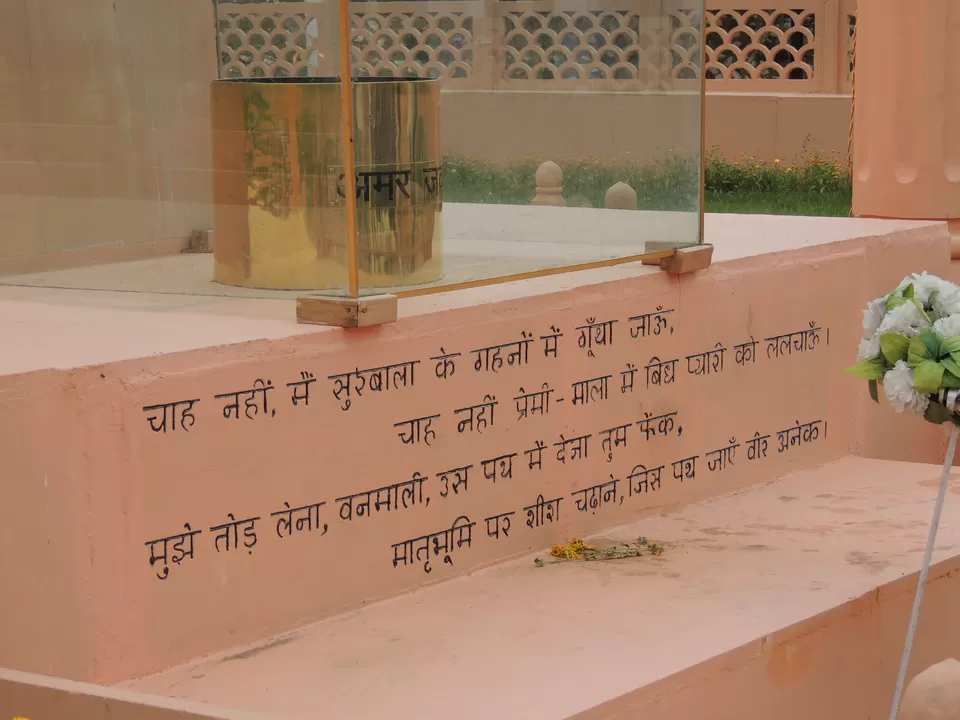 अमर ज
चाह नहीं, मैं सुरबाला के गहनों में गूँथा जाऊँ,
चाह नहीं प्रेमी-माला में बिंध प्यारी को ललचाऊँ।
मुझे तोड़ लेना, वनमाली, उस पथ में देना तुम फेंक,
मातृभूमि पर शीश चढ़ाने, जिस पथ जाएँ वीर अनेक।